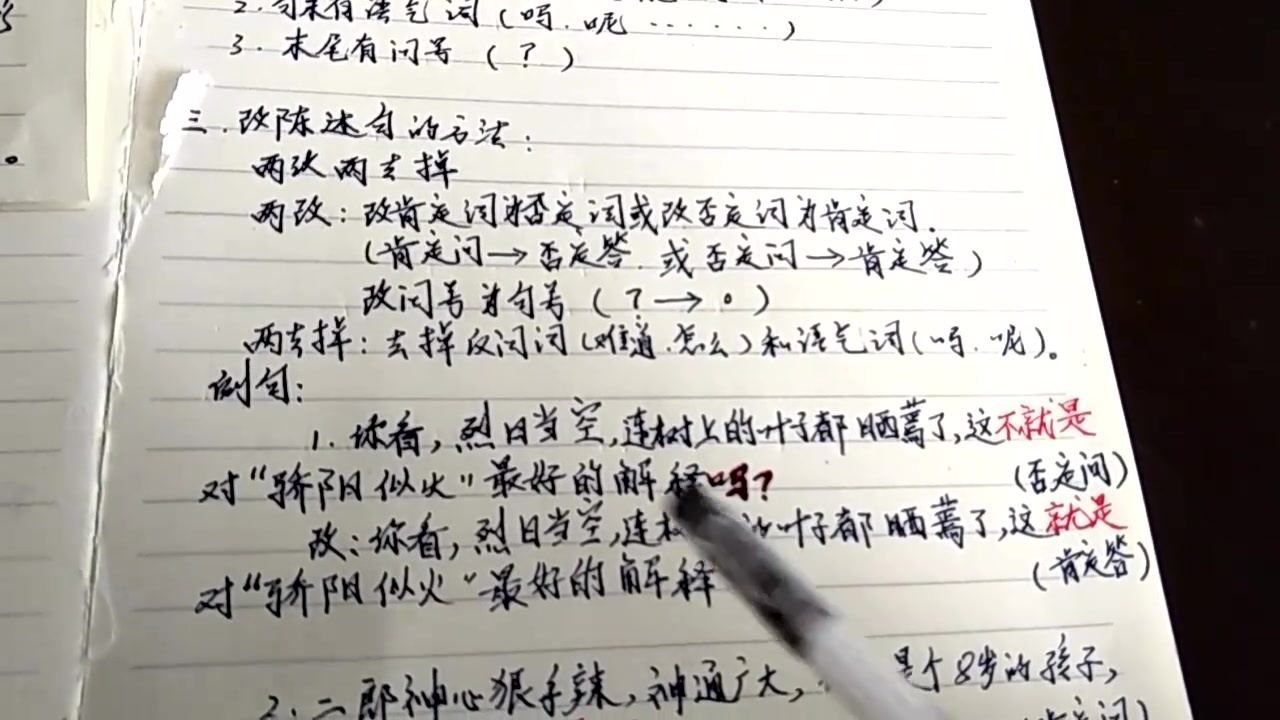 2.句末有语气词(吗.呢……)
3.末尾有问号(?)
三.改陈述句的方法:
两改两去掉
两改:改肯定词为否定词或改否定词为肯定词.
(肯定问→否定答.或否定问→肯定答.)
改问号为句号(?→。)
两去掉:去掉反问词(难道.怎么)和语气词(吗.呢)。
例句:
1.你看,烈日当空,连树上的叶子都晒蔫了,这不就是
对“骄阳似火”最好的解释吗?
(否定问)
改:你看,烈日当空,连树 叶子都晒蔫了,这就是
对“骄阳似火”最好的解释
(肯定答)
2.二郎神心狠手辣,神通广大, 是个8岁的孩子,